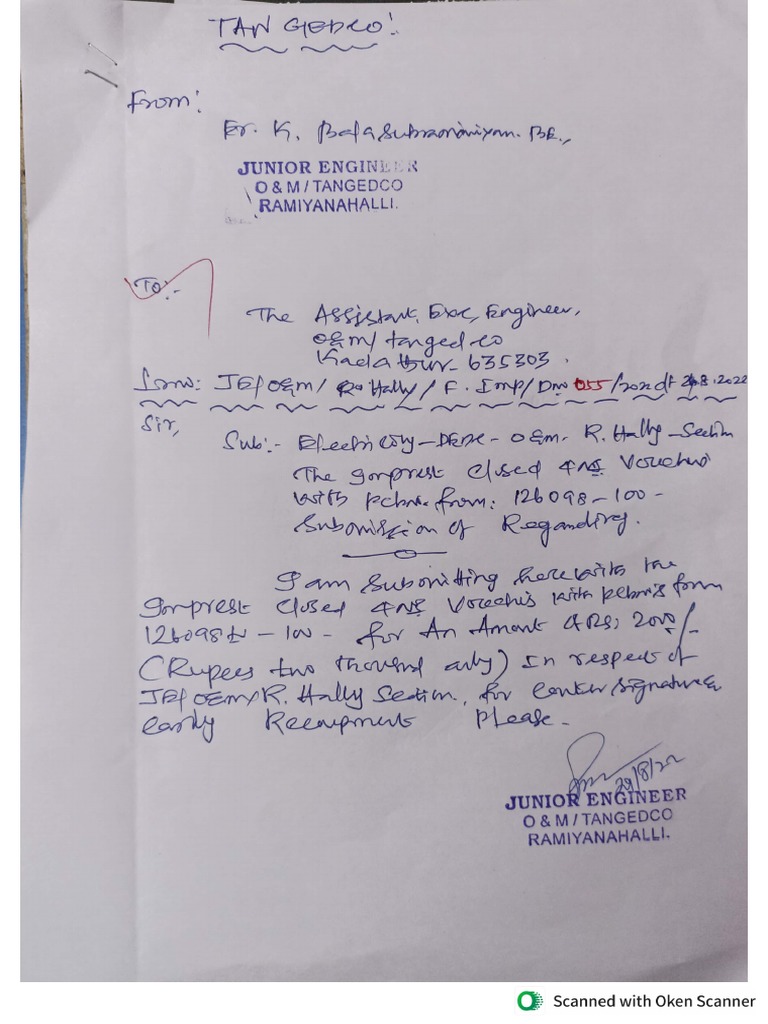 TANGEDCO!
From:
Er. K. Balasubramaniyan. BE.,
JUNIOR ENGINEER
O & M / TANGEDCO
RAMIYANAHALLI.
To:-
The Assistant. Exe, Engineer,
O&M/tangedco
Kadathur - 635303.
JE/O&M/ R. Hally / F. Imp/ DNo 055/2022 dt .8.2022
Sir,
Sub:- Electricity - - O&m. R. Hally - Section
The Imprest closed Vouchers
with from: 126098-100 -
Submission of Regarding.
I am submitting here with the
Imprest closed Vouchers with form
126098 to - 100 - for An Amount of Rs; 2000/-
(Rupees two thousand only) In respect of
JE/O&M/R. Hally Section, for counter signature &
early Recoupment Please.
29/8/22
JUNIOR ENGINEER
O & M / TANGEDCO
RAMIYANAHALLI.
Scanned with Oken Scanner